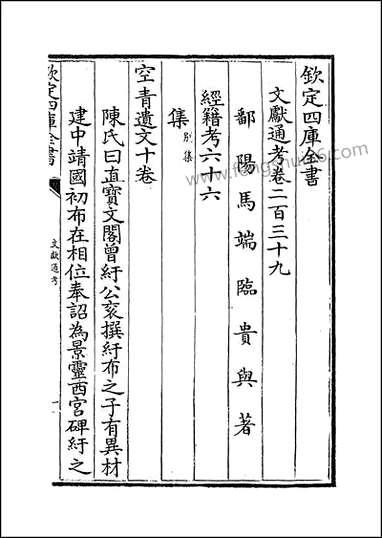 欽定四庫全書
文獻通考卷二百三十九
鄱陽馬端臨貴與著
經籍考六十六
集別集
空青遺文十卷
陳氏曰直寶文閣曾紆公衮撰紆布之子有異材
建中靖國初布在相位奉詔為景靈西宮碑紆之
欽定四庫全書
文獻通考
一